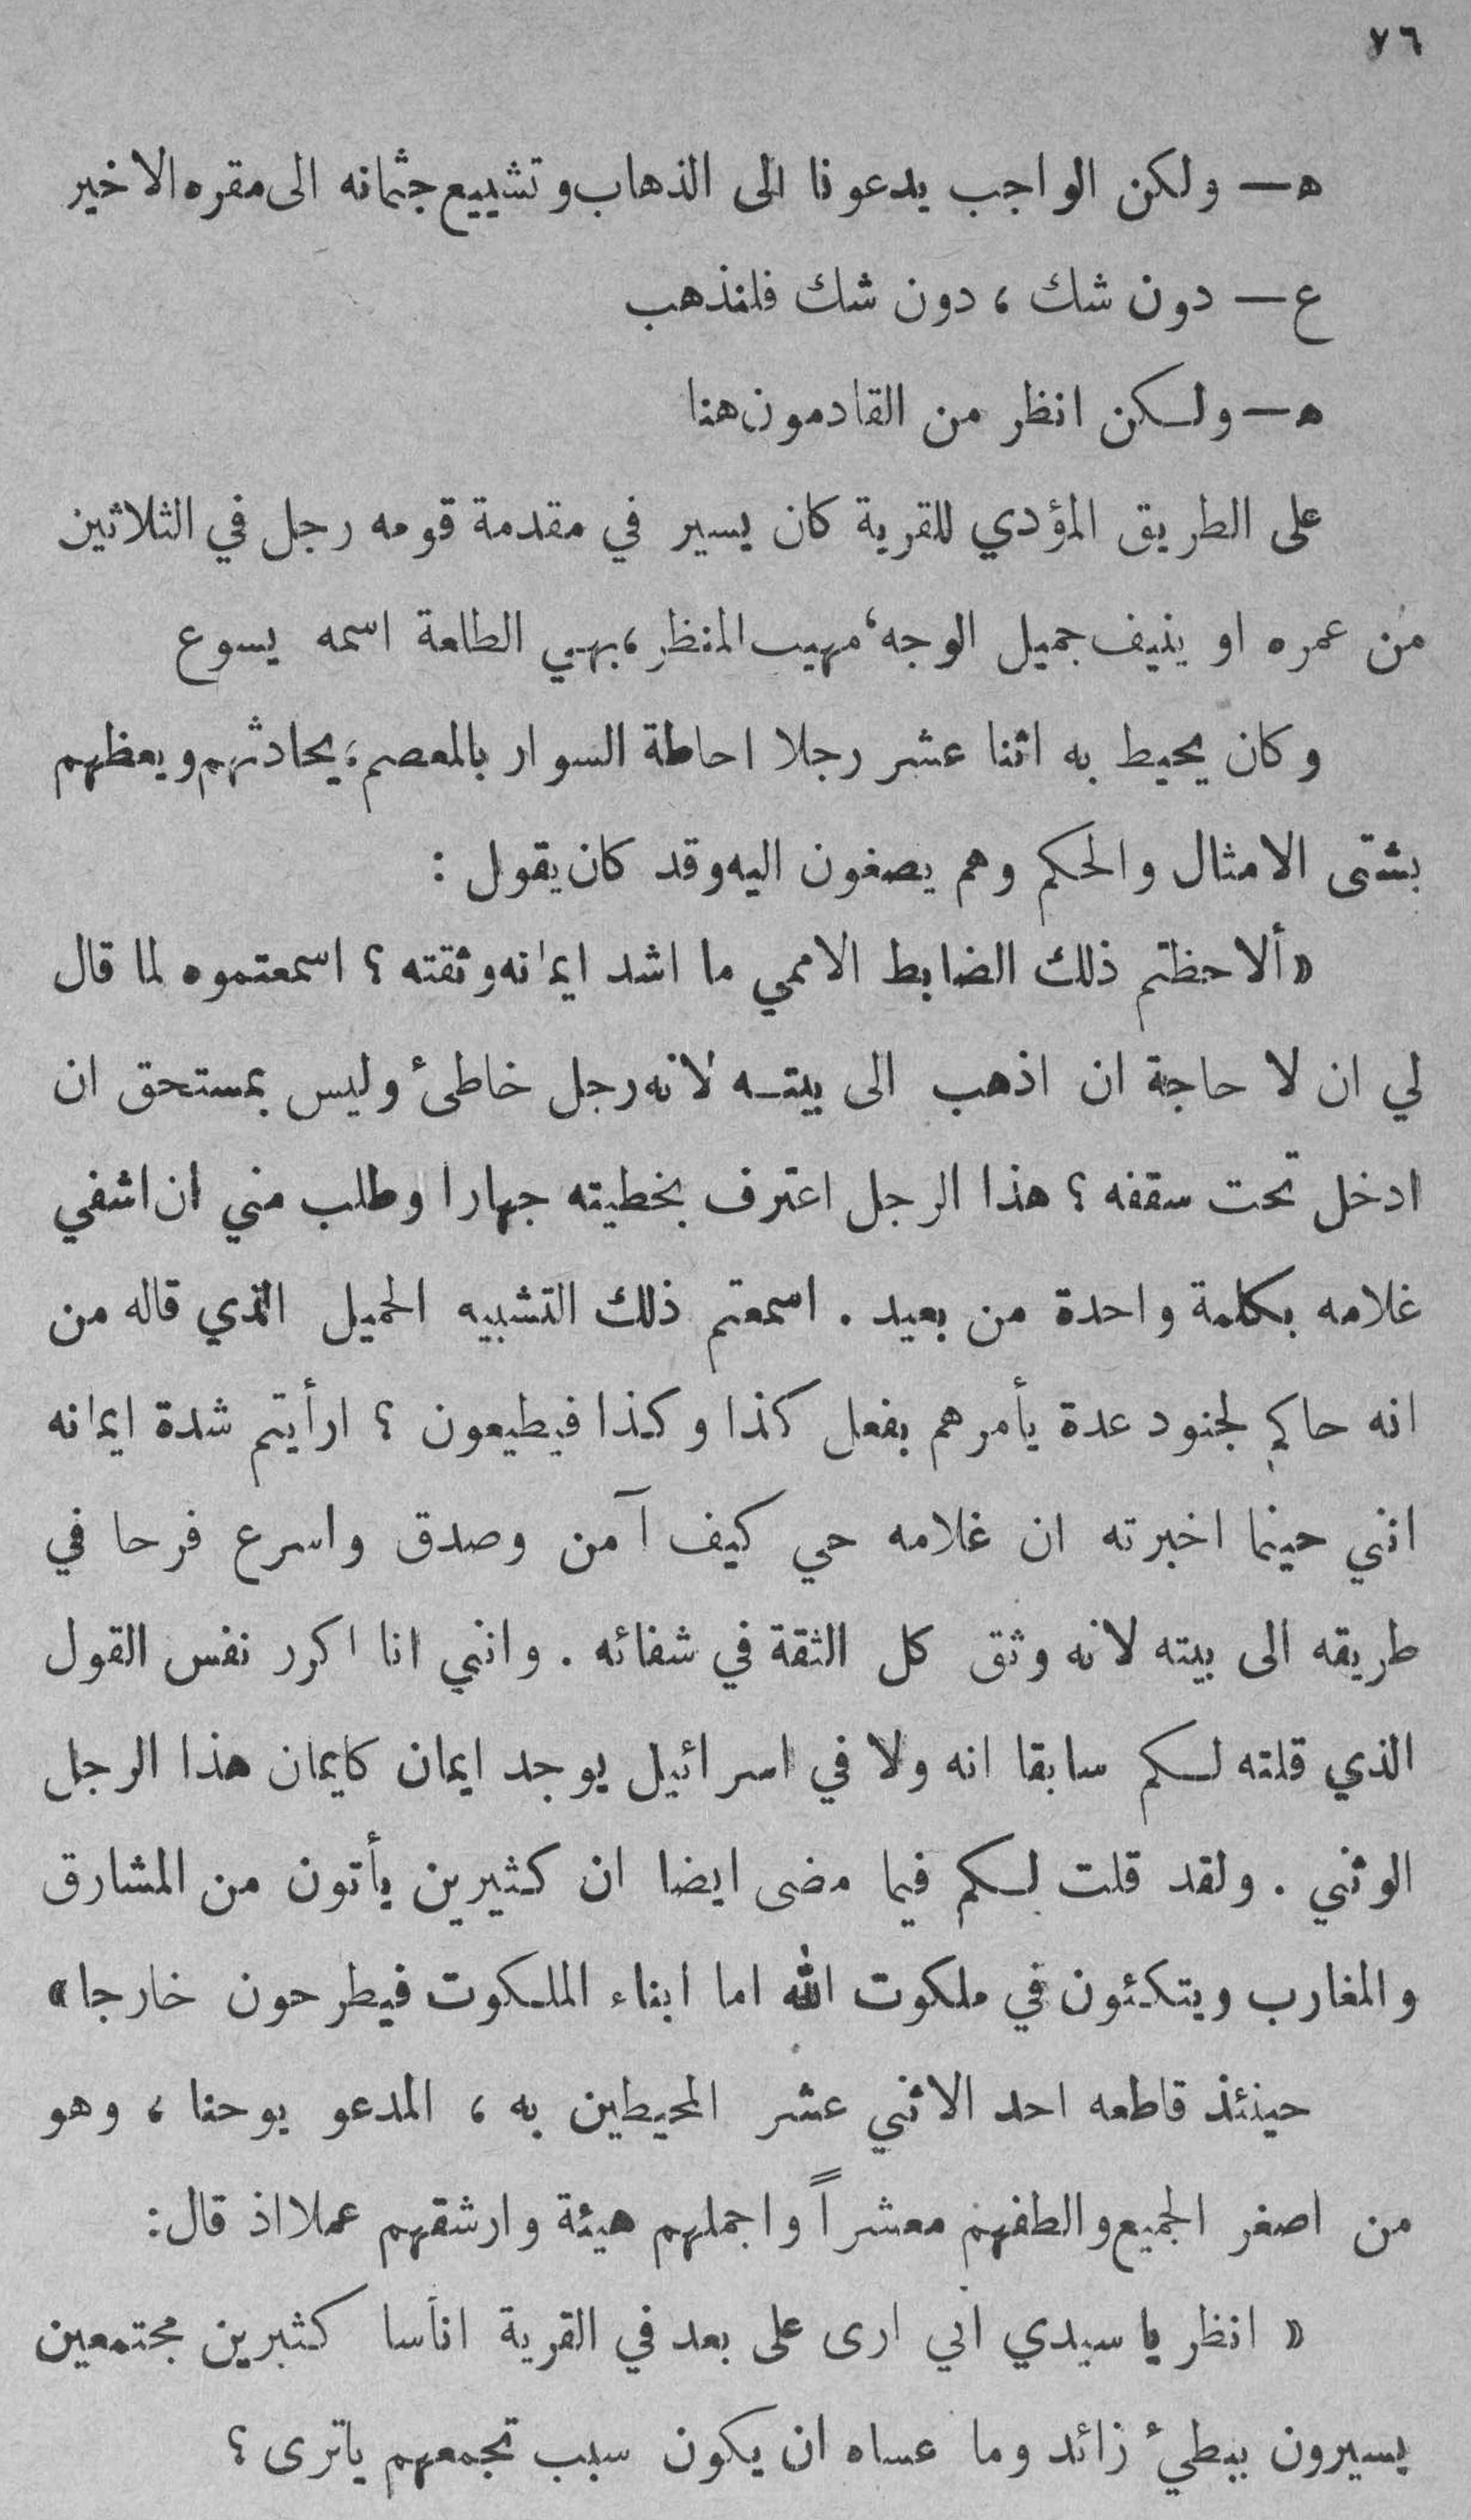 ٧٦
ه — ولكن الواجب يدعونا الى الذهاب وتشييع جثمانه الى مقره الاخير
ع — دون شك ، دون شك فلنذهب
ه — ولكن انظر من القادمون هنا
على الطريق المؤدي للقرية كان يسير في مقدمة قومه رجل في الثلاثين
من عمره او ينيف جميل الوجه ، مهيب المنظر ، بهي الطلعة اسمه يسوع
وكان يحيط به اثنا عشر رجلا احاطة السوار بالمعصم ، يحادثهم ويعظهم
بشتى الامثال والحكم وهم يصغون اليه وقد كان يقول :
« ألاحظتم ذلك الضابط الاممي ما اشد ايمانه وثقته ؟ اسمعتموه لما قال
لي ان لا حاجة ان اذهب الى بيته لانه رجل خاطئ وليس بمستحق ان
ادخل تحت سقفه ؟ هذا الرجل اعترف بخطيته جهارا وطلب مني ان اشفي
غلامه بكلمة واحدة من بعيد . اسمعتم ذلك التشبيه الجميل الذي قاله من
انه حاكم لجنود عدة يأمرهم بفعل كذا وكذا فيطيعون ؟ ارأيتم شدة ايمانه
انني حينما اخبرته ان غلامه حي كيف آمن وصدق واسرع فرحا في
طريقه الى بيته لانه وثق كل الثقة في شفائه . وانني انا اكرر نفس القول
الذي قلته لكم سابقا انه ولا في اسرائيل يوجد ايمان كايمان هذا الرجل
الوثني . ولقد قلت لكم فيما مضى ايضا ان كثيرين يأتون من المشارق
والمغارب ويتكئون في ملكوت الله اما ابناء الملكوت فيطرحون خارجا »
حينئذ قاطعه احد الاثني عشر المحيطين به ، المدعو يوحنا ، وهو
من اصغر الجميع والطفهم معشراً واجملهم هيئة وارشقهم عملا اذ قال :
« انظر يا سيدي اني ارى على بعد في القرية اناسا كثيرين مجتمعين
يسيرون ببطيٴ زائد وما عساه ان يكون سبب تجمعهم ياترى ؟